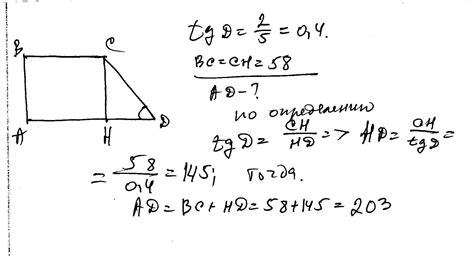 tg D = 2/5 = 0,4.
BC = CH = 58
AD - ?
B C
A H D
по определению
tg D = CH/HD => HD = CH/tg D =
= 58/0,4 = 145; тогда
AD = BC + HD = 58 + 145 = 203